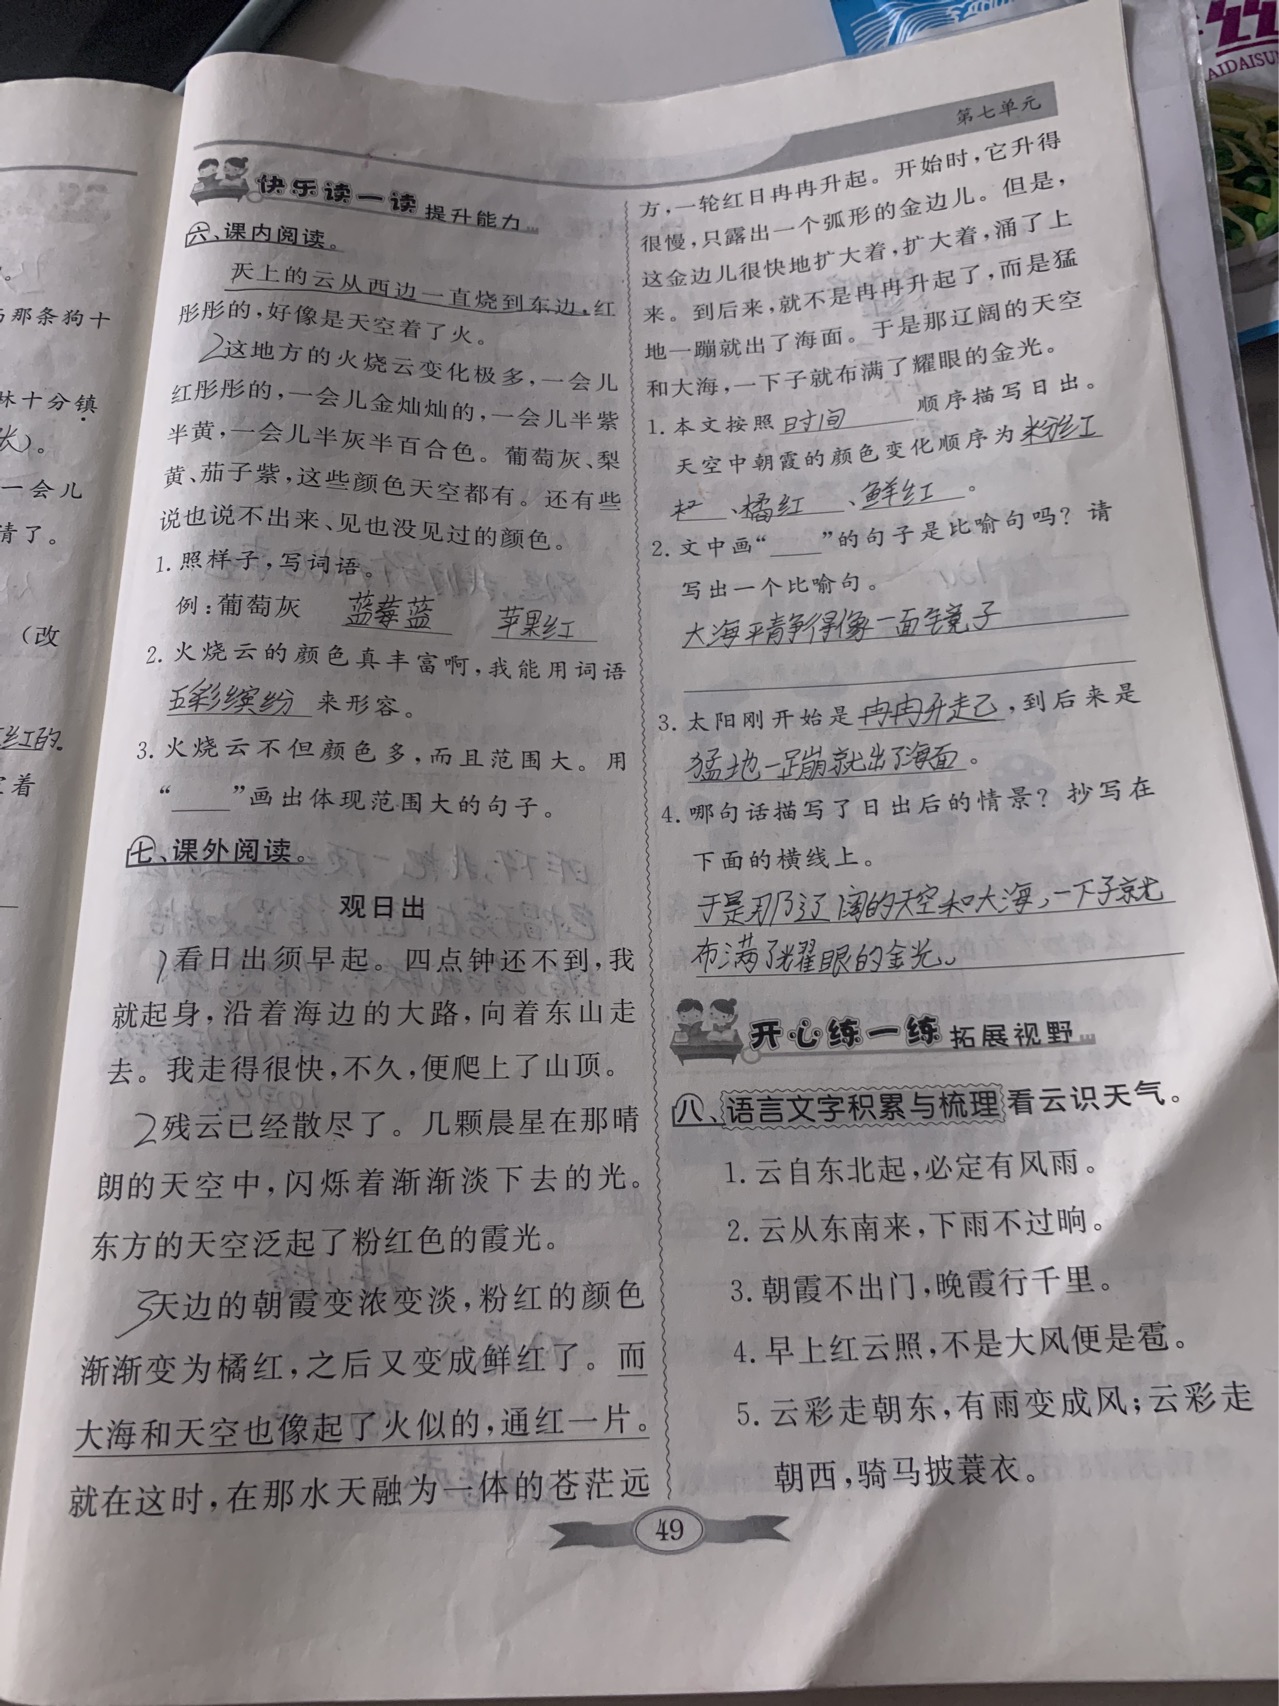 AIDAISU
第七单元
马那条狗十
林十分镇
张)。
一会儿
情了。
(改
红的。
着
快乐读一读 提升能力
六、课内阅读。
天上的云从西边一直烧到东边,红
彤彤的,好像是天空着了火。
2这地方的火烧云变化极多,一会儿
红彤彤的,一会儿金灿灿的,一会儿半紫
半黄,一会儿半灰半百合色。葡萄灰、梨
黄、茄子紫,这些颜色天空都有。还有些
说也说不出来、见也没见过的颜色。
1.照样子,写词语。
例:葡萄灰 蓝莓蓝 苹果红
2.火烧云的颜色真丰富啊,我能用词语
五彩缤纷 来形容。
3.火烧云不但颜色多,而且范围大。用
“____”画出体现范围大的句子。
七、课外阅读。
观日出
1看日出须早起。四点钟还不到,我
就起身,沿着海边的大路,向着东山走
去。我走得很快,不久,便爬上了山顶。
2残云已经散尽了。几颗晨星在那晴
朗的天空中,闪烁着渐渐淡下去的光。
东方的天空泛起了粉红色的霞光。
3天边的朝霞变浓变淡,粉红的颜色
渐渐变为橘红,之后又变成鲜红了。而
大海和天空也像起了火似的,通红一片。
就在这时,在那水天融为一体的苍茫远
方,一轮红日冉冉升起。开始时,它升得
很慢,只露出一个弧形的金边儿。但是,
这金边儿很快地扩大着,扩大着,涌了上
来。到后来,就不是冉冉升起了,而是猛
地一蹦就出了海面。于是那辽阔的天空
和大海,一下子就布满了耀眼的金光。
1.本文按照 时间 顺序描写日出。
天空中朝霞的颜色变化顺序为 粉红
、橘红、鲜红。
2.文中画“____”的句子是比喻句吗?请
写出一个比喻句。
大海平静得像一面镜子
3.太阳刚开始是 冉冉升起,到后来是
猛地一蹦就出了海面。
4.哪句话描写了日出后的情景?抄写在
下面的横线上。
于是那辽阔的天空和大海,一下子就
布满了耀眼的金光。
开心练一练 拓展视野
八、语言文字积累与梳理 看云识天气。
1.云自东北起,必定有风雨。
2.云从东南来,下雨不过晌。
3.朝霞不出门,晚霞行千里。
4.早上红云照,不是大风便是雹。
5.云彩走朝东,有雨变成风;云彩走
朝西,骑马披蓑衣。
49